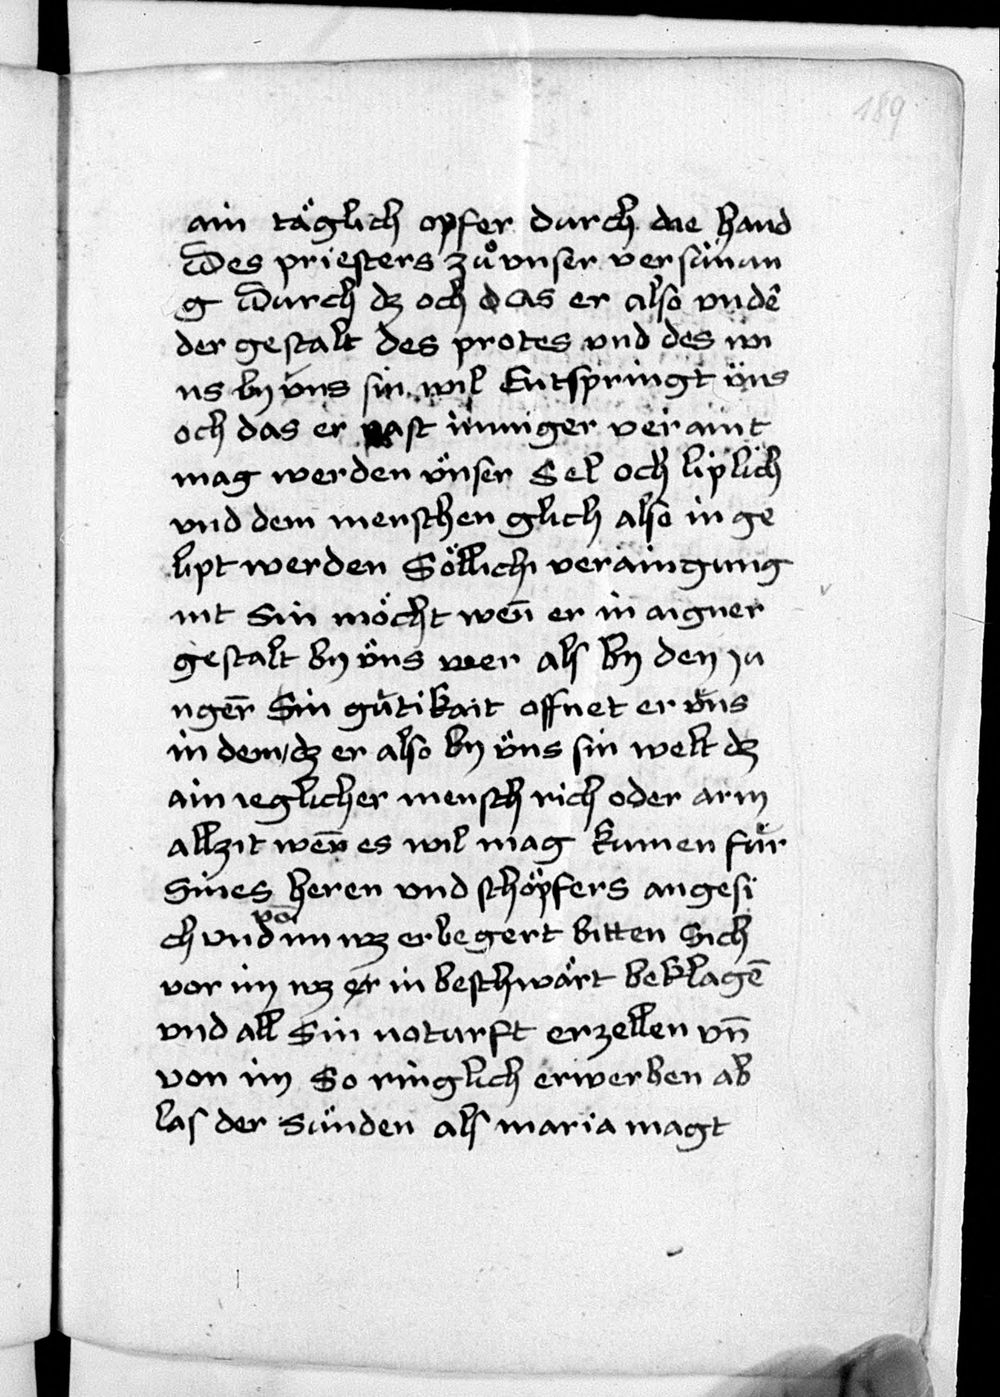 189
ain täglich opfer durch die hand
Des priesters zů vnser versünun
g Durch dz och das er also vndē
der gestalt des protes vnd des wi
ns by v̈ns sin wil Entspringt v̈ns
och das er vast inniger veraint
mag werden v̈nser Sel och liplich
vnd dem menschen glich also in ge
lipt werden Söllichi veraingung
nit Sin möcht weñ er in aigner
gestalt by v̈ns wer als by den ju
ngeȓ Sin gütikait offnet er v̈ns
in dem / dz er also by v̈ns sin welt dz
ain ieglicher mensch rich oder arm
allzit weñ es wil mag kumen für
Sines heren vnd schöpfers angesi
ch vnd võ im wz er begert bitten Sich
vor im wz er in beschwärt beklagē
vnd all Sin noturft erzellen vñ
von im So ringlich erwerben ab
las der Sünden als maria magt